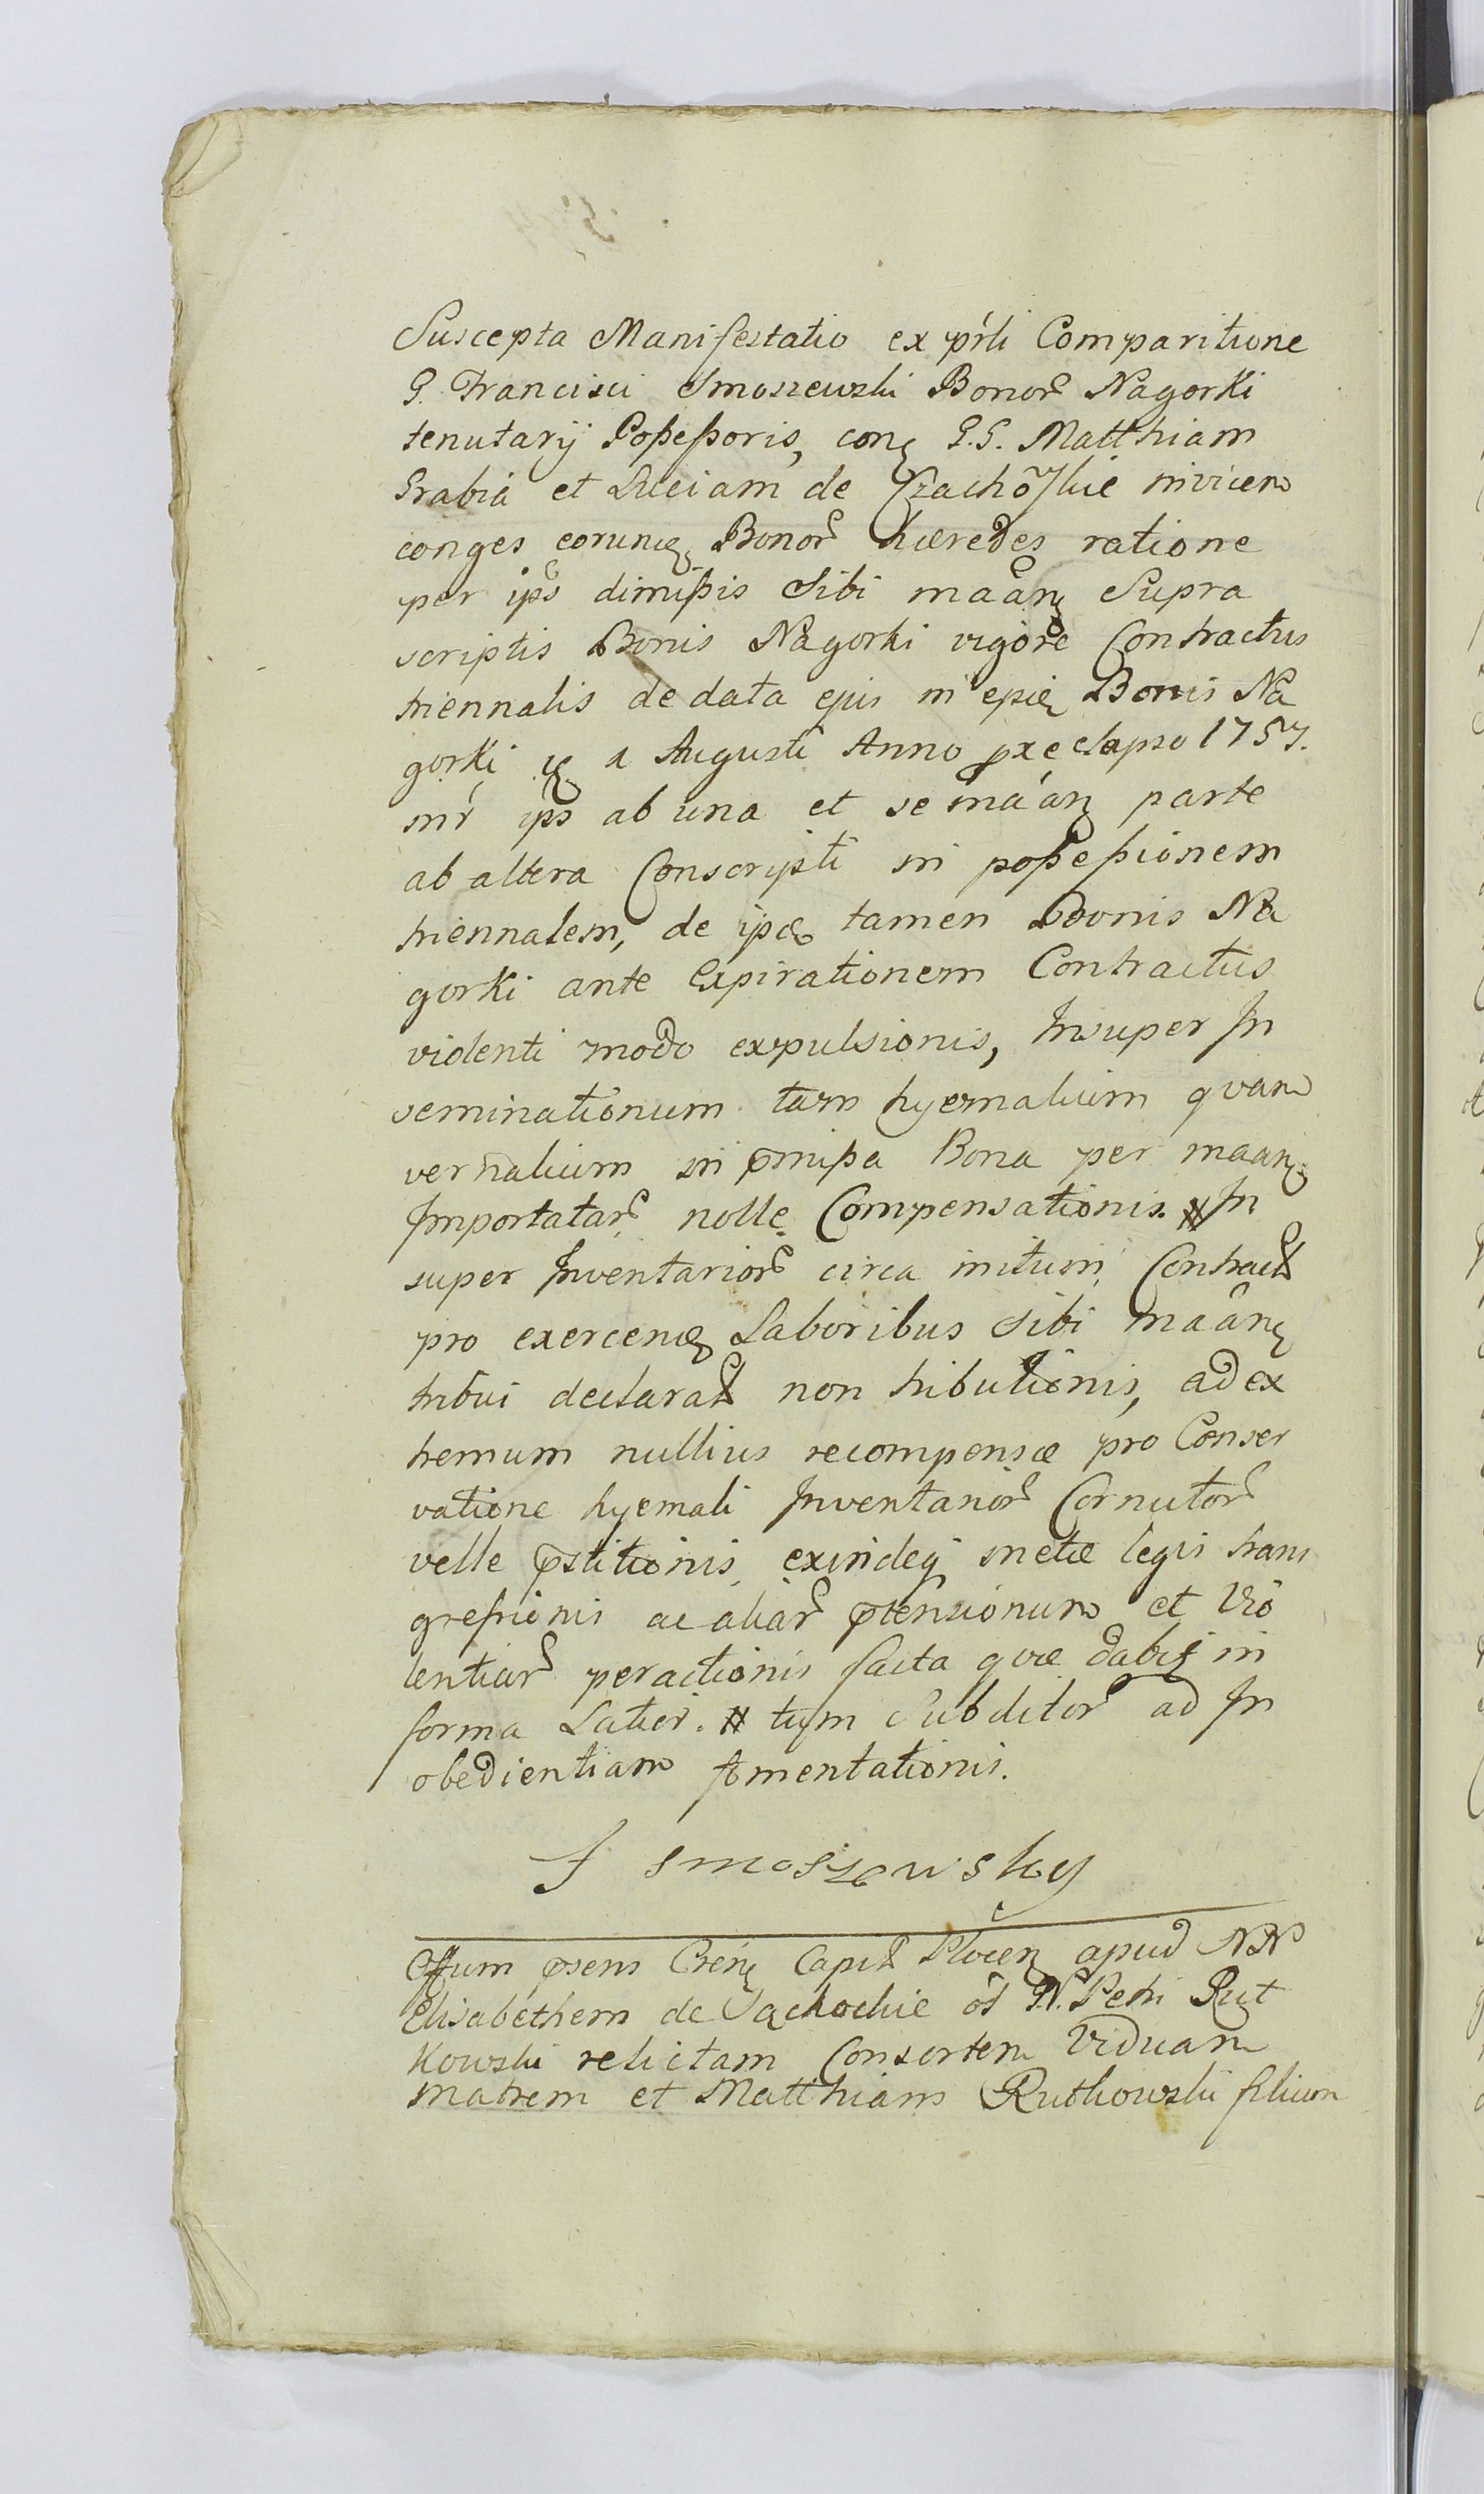 Suscepta Manifestatio ex prʹli Comparitione
G. Francisci Smoszewski Bonor̃ Nagorki
tenutarij Poßeßoris, conꝫ G.G. Matthiam
Grabia et Luciam de Czachõskie invicem
conges eorundꝫ Bonor̃ hæredes ratione
per ips̃ dimißis Sibi maãnꝫ Supra
scriptis Bonis Nagorki vigore Contractus
triennalis de data ejus in Bonis Na
gorki 1 Augusti Anno præelapso 1757.
intʹ ips̃ ab una et se mãanꝫ parte
ab altera Conscripti in poßeßionem
triennalem, de ipsꝫ tamen Bonis Na
gorki ante Expirationem Contractus
violenti modo expulsionis, Insuper In
seminationum tam hyemalium quam
vernalium in p̃mißa Bona per maanꝫ
Importatar̃ nolle Compensationis. # In
super Inventarior̃ circa initum Contract̃
pro exercendꝫ Laboribus Sibi maãnꝫ
tribui declarat̃ non tributionis, ad ex
tremum nullius recompensæ pro Conser
vatione hyemali Inventarior̃ Cornutor̃
velle p̃stitionis, exindeq metæ legis trans
greßionis ac aliar̃ p̃tensionum et Vio
lentiar̃ peractionis facta quæ dabit in
forma Latior. # tum Subditor̃ ad In
obedientiam fomentationis.
F Smoszewsky
Offum p̃sens Crenꝫ Capit̃ Plocenꝫ apud NN
Elisabethem de õl N. Petri Rut
kowski relictam Consortem Viduam
matrem et Matthiam Rutkowski filium